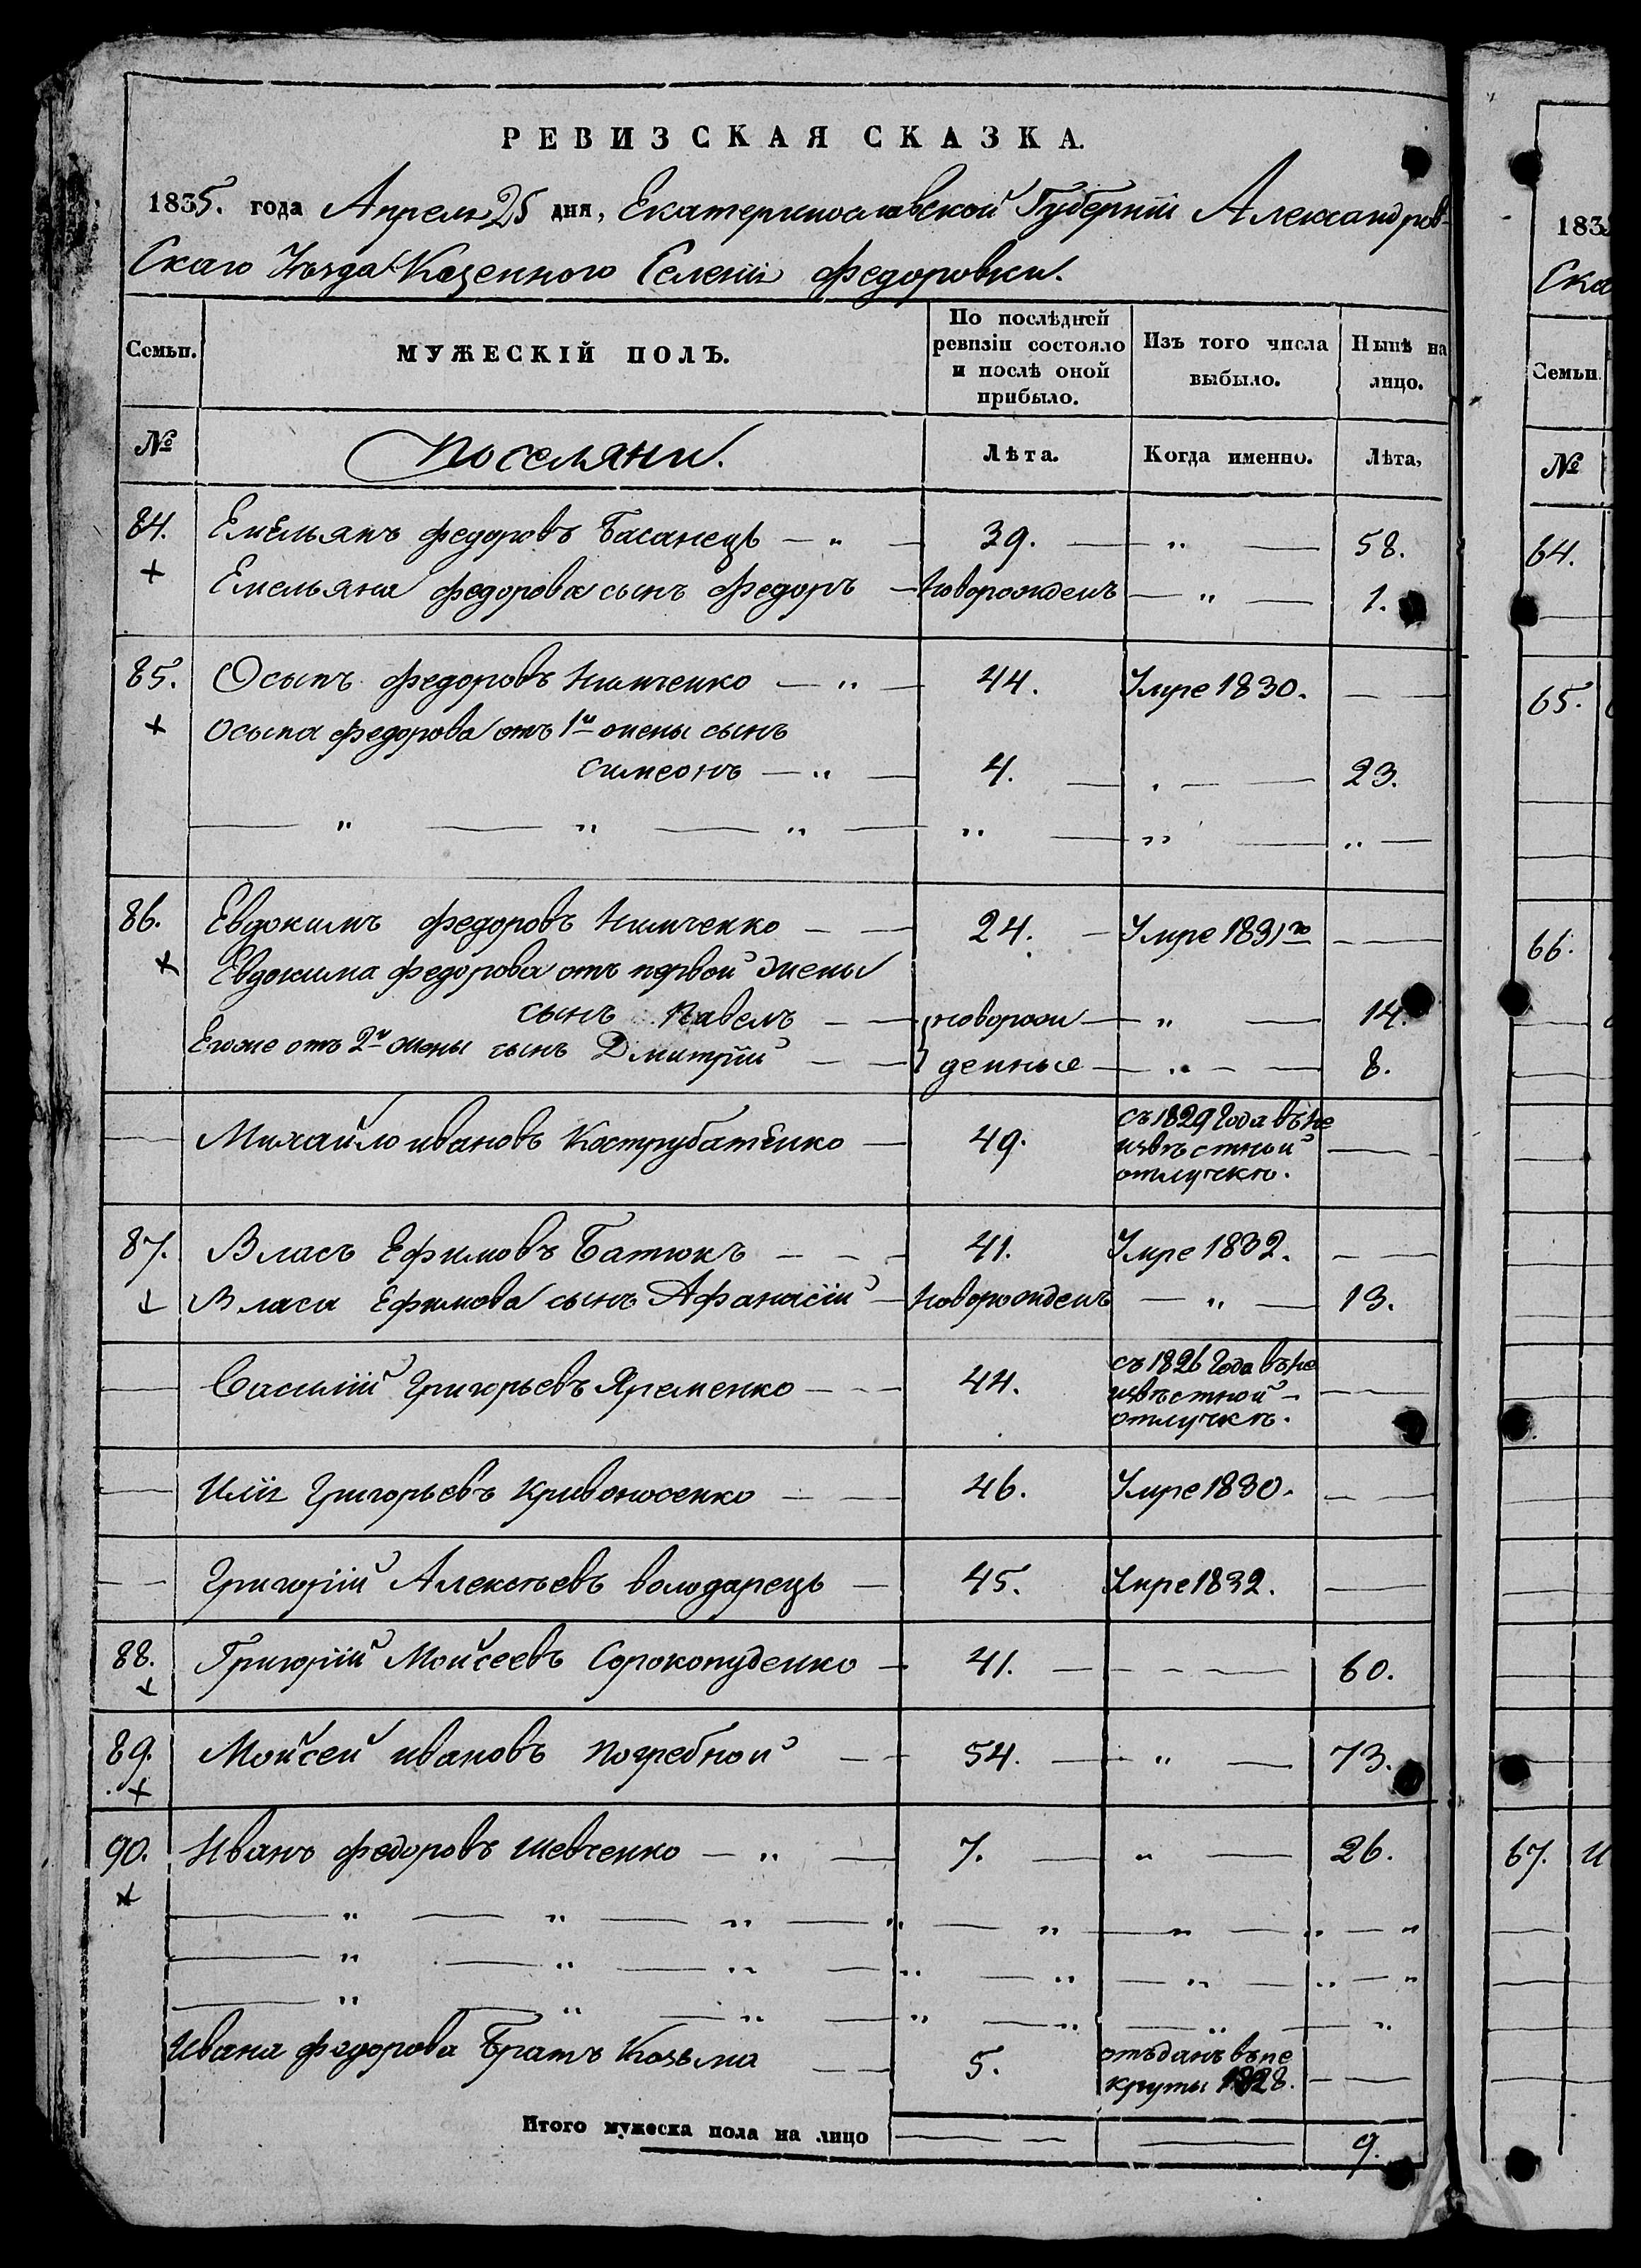 РЕВИЗСКАЯ СКАЗКА.
1835. года Апреля 25 дня, Екатеринославской Губернiи Александров-
скаго Уезда Казенного Селенiя Федоровки.
Семьи. МУЖЕСКIЙ ПОЛЪ. По послѣдней ревизiи состояло и послѣ оной прибыло. Изъ того числа выбыло. Нынѣ на лицо.
№ Поселяни. Лѣта. Когда именно. Лѣта,
84. Емельянъ Федоровъ Басанець — " — 39. — " — 58.
+ Емельяна Федорова сынъ Федоръ — Новорожденъ — " — 1.
85. Осыпъ Федоровъ Нимченко — " — 44. Умре 1830. — —
+ Осыпа Федорова отъ 1й жены сынъ
Симеонъ — " — 4. — " — 23.
— " — " — " — " — " — " —
86. Евдокимъ Федоровъ Нимченко — — 24. — Умре 1831го — —
+ Евдокима Федорова отъ первой жены
сынъ Павелъ — — новорож — " — 14.
Егоже отъ 2й жены сынъ Дмитрiй — — денные — " — — 8.
— Михайло Ивановъ Кострубатенко — 49. съ 1829 Года въ не
извѣстной — —
отлучкѣ.
87. Власъ Ефимовъ Батюкъ — — — 41. Умре 1832. — —
+ Власа Ефимова сынъ Афанасiй — Новорожденъ — " — 13.
— Василiй Григорьевъ Яременко — — — 44. съ 1826 Года въ не
извѣстной — — —
отлучкѣ.
— Илiя Григорьевъ Кривоносенко — — 46. Умре 1830. — —
— — Григорiй Алексѣевъ Володарець — 45. Умре 1832. —
88. Григорiй Мойсеевъ Сорокопуденко — 41. — — — — 60.
+
89. Мойсей Ивановъ Погребной — — 54. — " — 73.
+
90. Иванъ Федоровъ Шевченко — " — 7. — " — 26.
+
— " — " — " — " — " — " — " — "
— " — " — " — " — " — " — " — "
— " — " — " — " — " — " — "
Ивана Федорова Братъ Козьма — — 5. отъданъ въ ре
круты 1828. — —
Итого мужеска пола на лицо — — — 9.
183
Ска
Семьи
№
64.
65.
66.
67. И